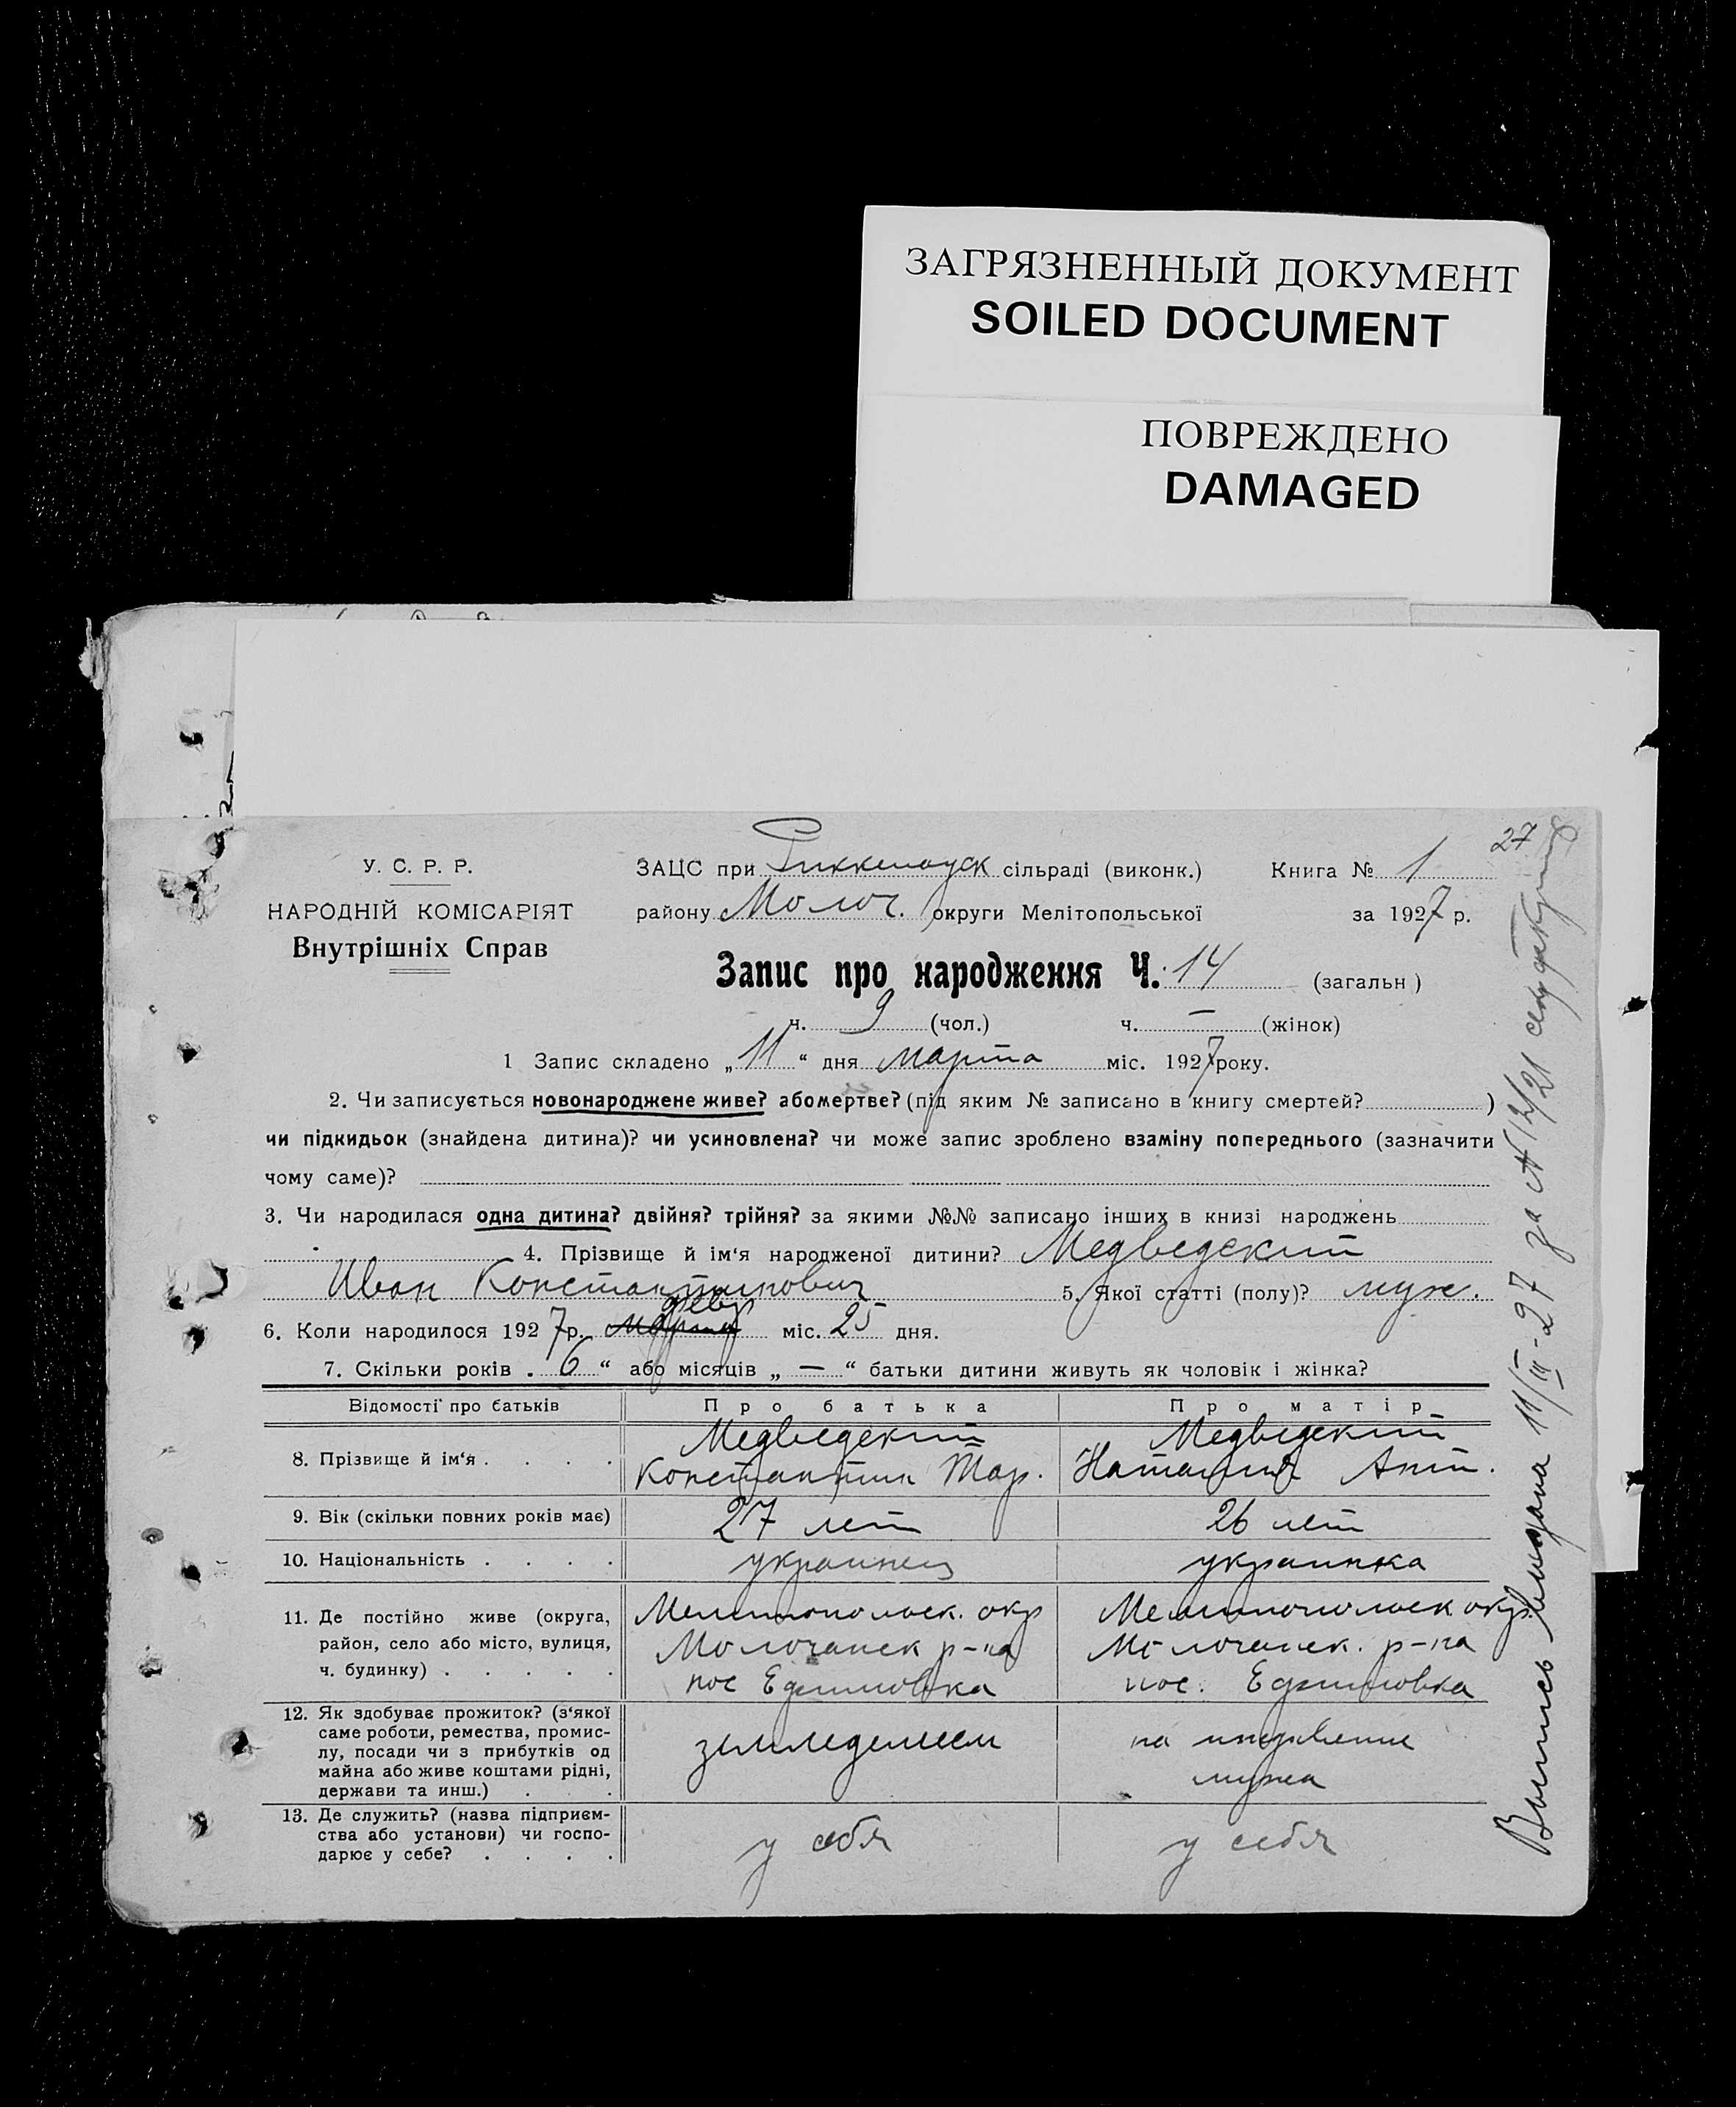 ЗАГРЯЗНЕННЫЙ ДОКУМЕНТ
SOILED DOCUMENT
ПОВРЕЖДЕНО
DAMAGED
27
У. С. Р. Р.
НАРОДНІЙ КОМІСАРІЯТ
Внутрішніх Справ
ЗАЦС при сільраді (виконк.) Книга № 1
району Молоч. округи Мелітопольської за 1927 р.
Запис про народження Ч. 14 (загальн )
ч. 9 (чол.) ч. — (жінок)
1 Запис складено „ 11 “ дня марта міс. 1927 року.
2. Чи записується новонароджене живе? або мертве? (під яким № записано в книгу смертей? )
чи підкидьок (знайдена дитина)? чи усиновлена? чи може запис зроблено взаміну попереднього (зазначити
чому саме)?
3. Чи народилася одна дитина? двійня? трійня? за якими №№ записано інших в книзі народжень
4. Прізвище й ім‘я народженої дитини? Медведский
Иван Константинович 5. Якої статті (полу)? муж.
6. Коли народилося 1927 р. февр міс. 25 дня.
7. Скільки років . 6 “ або місяців „ — “ батьки дитини живуть як чоловік і жінка?
Відомості про батьків Про батька Про матір
8. Прізвище й ім‘я . . . .
Медведский
Константин Тар.
Медведский
Наталия Ант.
9. Вік (скільки повних років має) 27 лет 26 лет
10. Національність . . . . украинец украинка
11. Де постійно живе (округа,
район, село або місто, вулиця,
ч. будинку) . . . . .
Мелитопольск. окр
Молочанск р-на
пос
Мелитопольск окр.
Молочанск. р-на
пос.
12. Як здобуває прожиток? (з‘якої
саме роботи, ремества, промис-
лу, посади чи з прибутків од
майна або живе коштами рідні,
держави та инш.) . .
земледелием
на иждивение
мужа
13. Де служить? (назва підприєм-
ства або установи) чи госпо-
дарює у себе? . . . .
у себя
у себя
Выпись выдана 11/III-27 за №